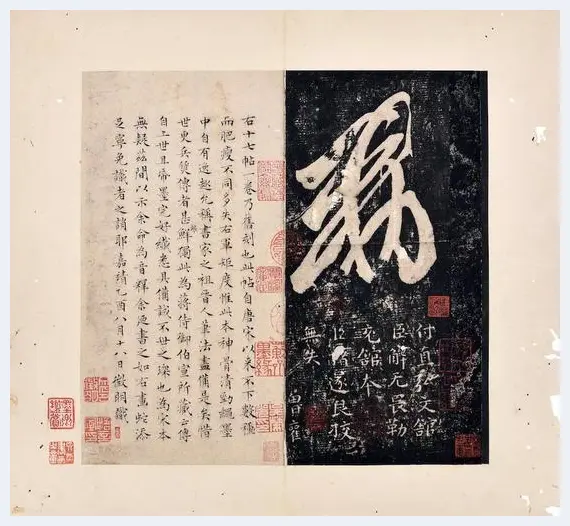 敕
付直弘文館
臣解无畏勒
充館本
臣褚遂良校
無失
右十七帖一卷乃舊刻也此帖自唐宋以來不下數種
而肥瘦不同多失右軍矩度惟此本神骨清勁繩墨
中自有逸趣允稱書家之祖晉人筆法盡備是矣惜
世更兵燹傳者甚鮮獨此為蔣侍御伯宣所藏云傳
自上世且帝墨完好識悉具備誠不世之璪也為宋本
無疑茲間以示余命為音釋余遂書之如右畫蛇添
足寧免識者之誚耶嘉靖乙酉八月十八日徵明識